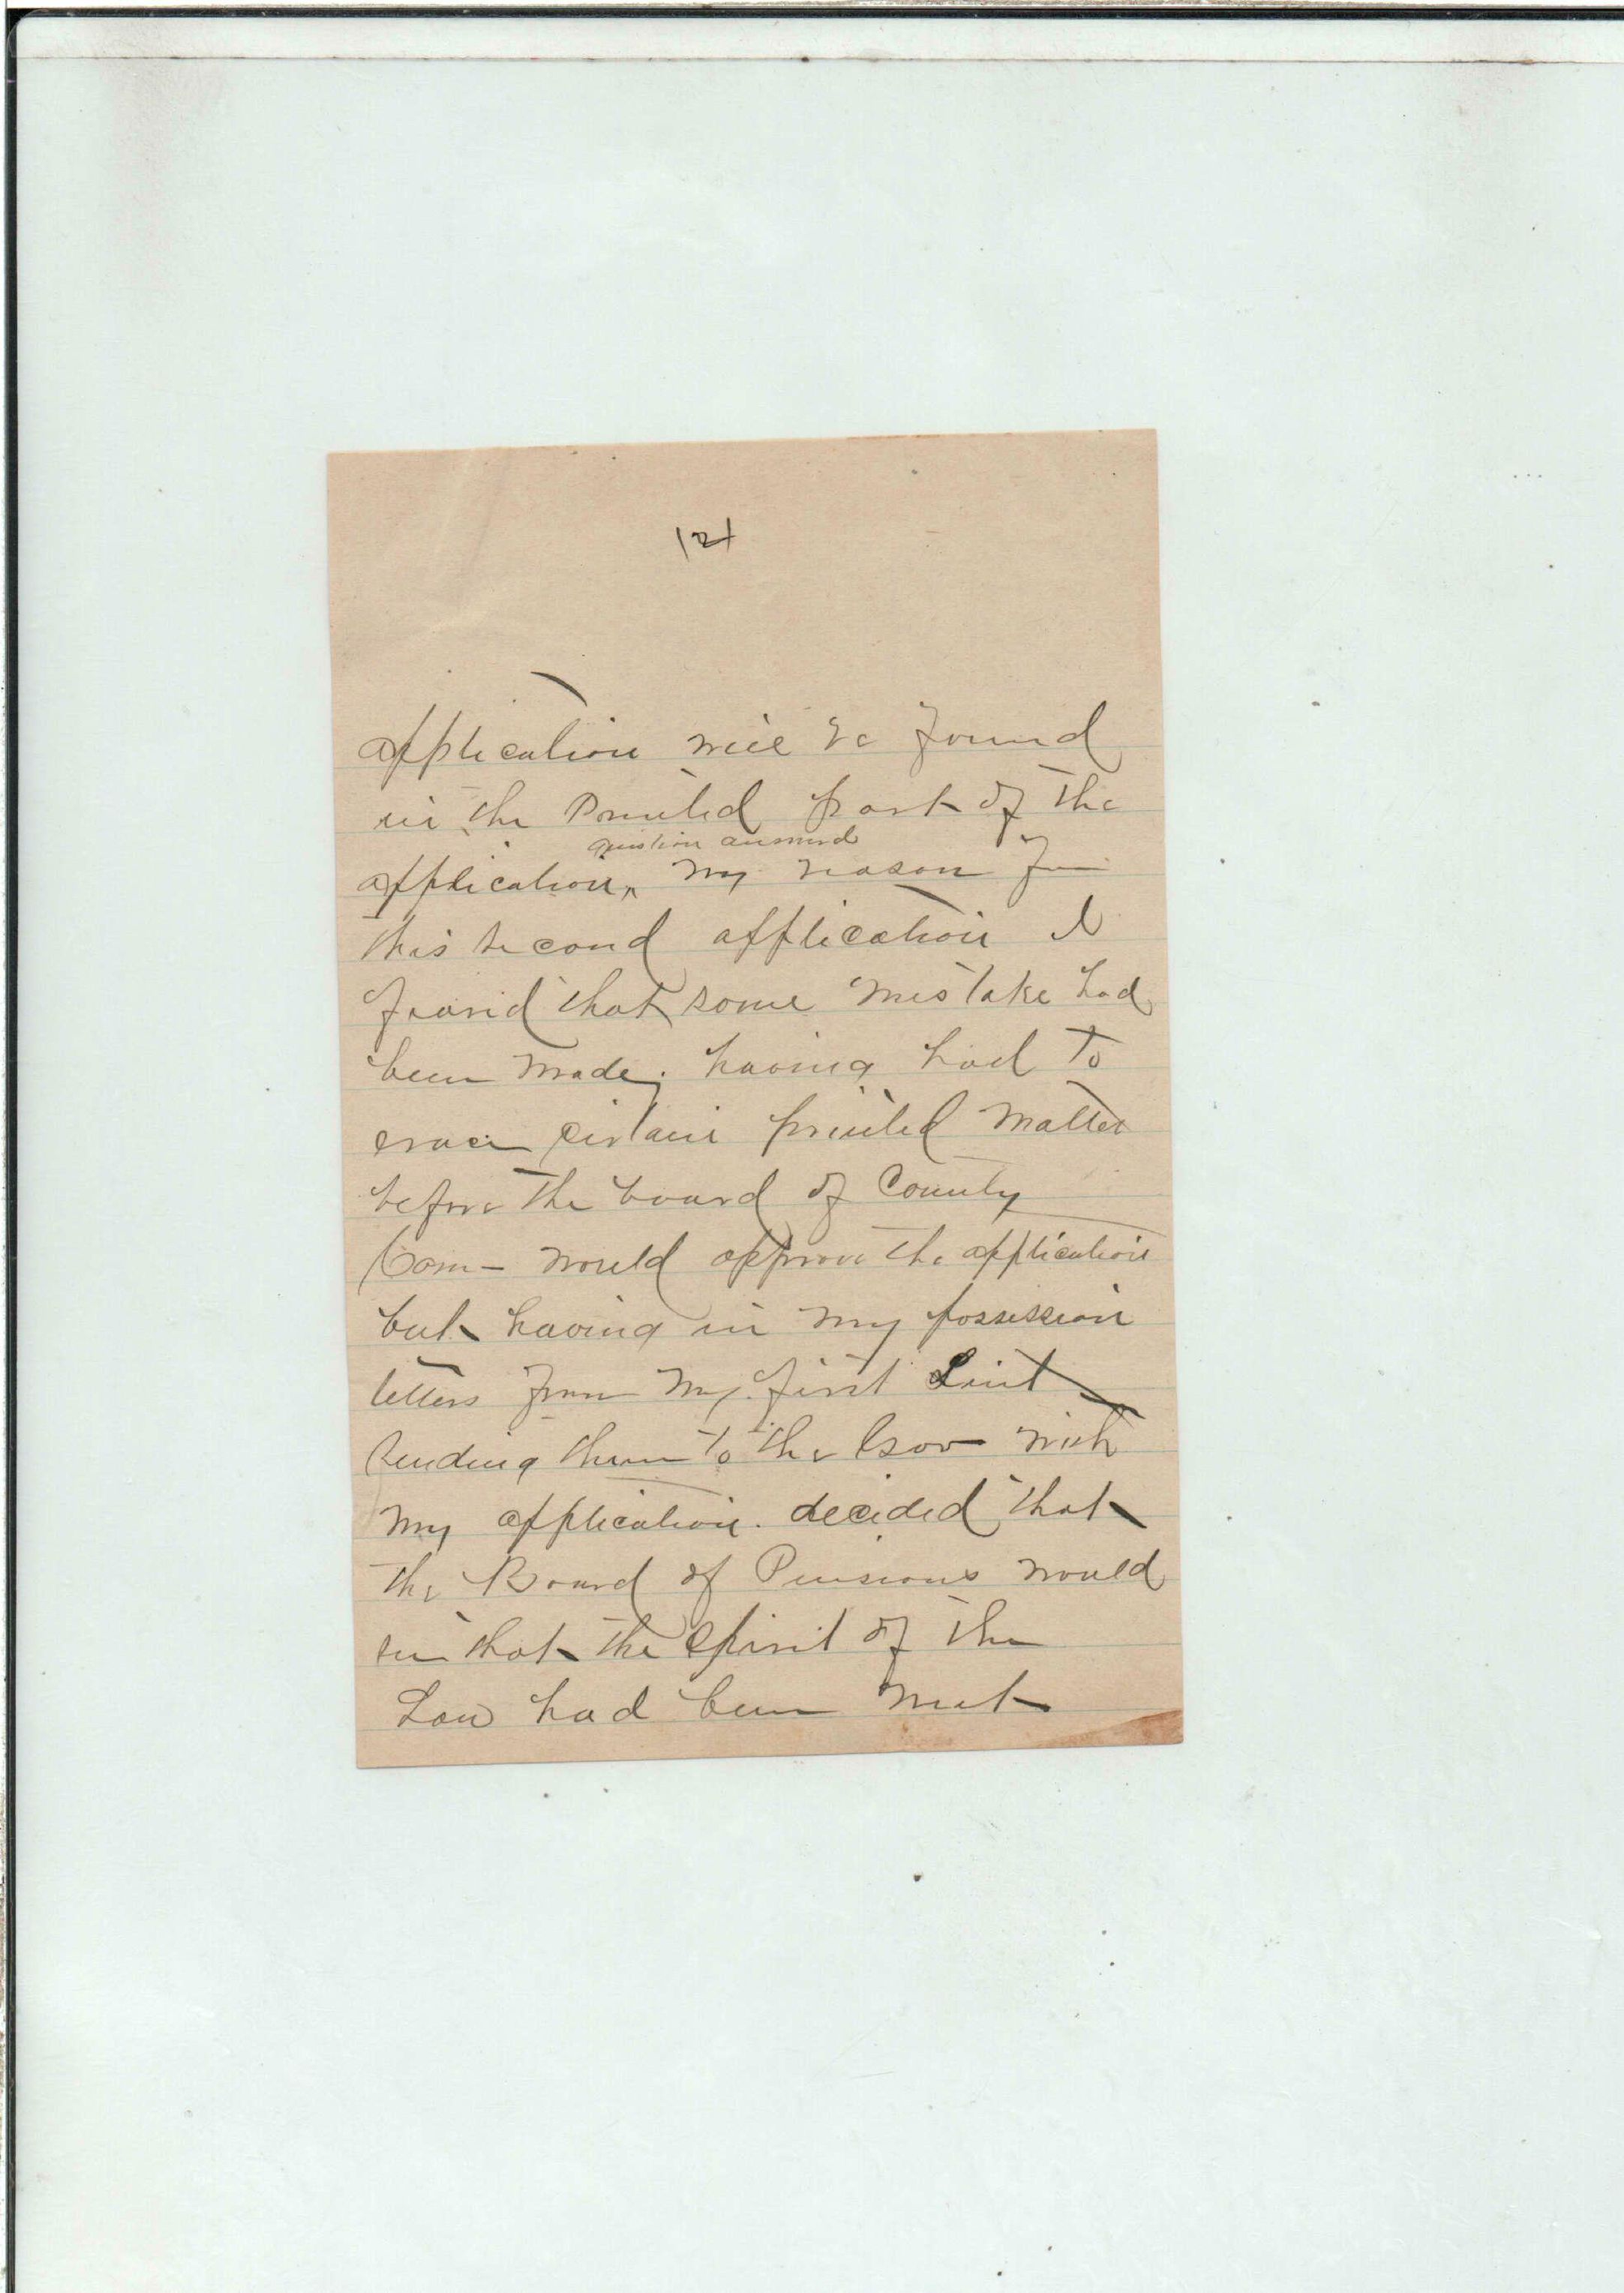 (2)
application will be found
in the Printed part of the
question answerd
application, my reason for
this second application I
found that some mistake had
been made, having had to
erace certain printed matter
before the board of County
Com- would approve the application
but having in my possession
letters from my first Lieut
sending them to the Gov with
my application. decided that
the Board of Pensions would
see that the Spirit of the
Law had been met